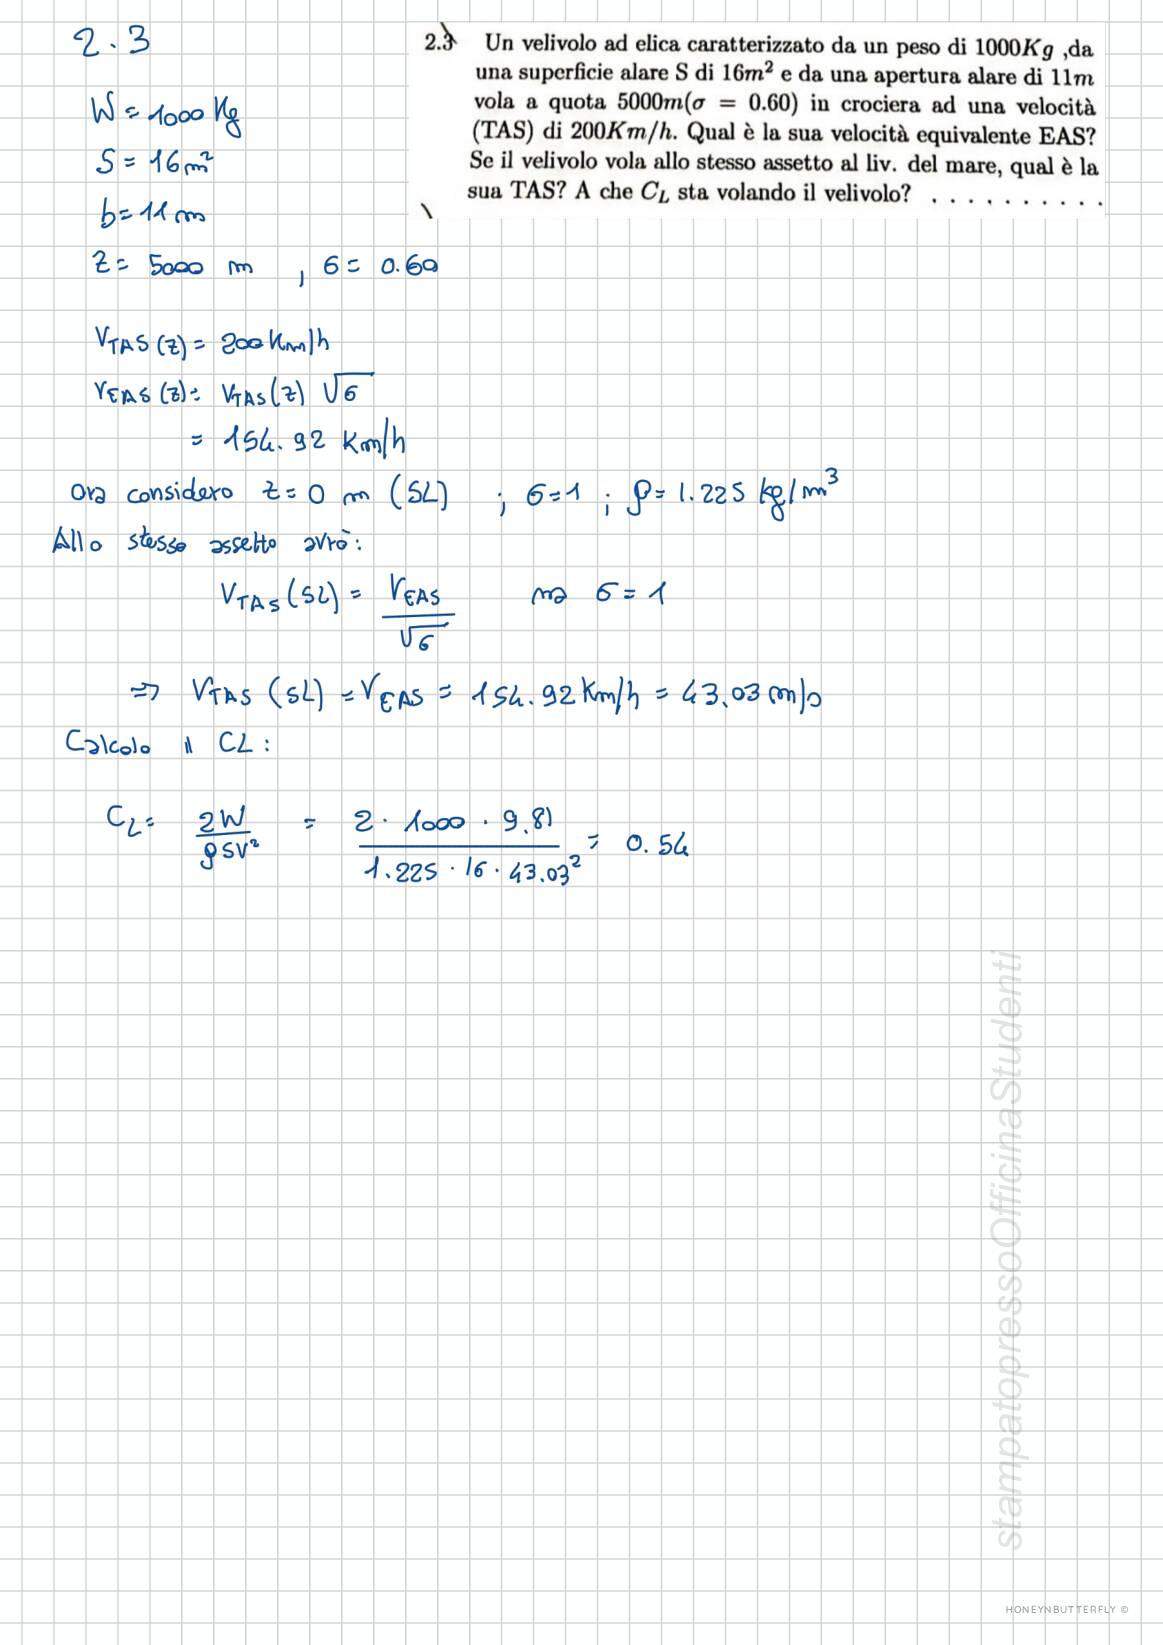 2.3
2.3 Un velivolo ad elica caratterizzato da un peso di 1000Kg ,da
una superficie alare S di 16m² e da una apertura alare di 11m
vola a quota 5000m(σ = 0.60) in crociera ad una velocità
(TAS) di 200Km/h. Qual è la sua velocità equivalente EAS?
Se il velivolo vola allo stesso assetto al liv. del mare, qual è la
sua TAS? A che C_L sta volando il velivolo? . . . . . . . . . .
W = 1000 Kg
S = 16 m²
b = 11 m
z = 5000 m , σ = 0.60
V_TAS (z) = 200 Km/h
V_EAS (z) = V_TAS (z) √σ
= 154.92 Km/h
Ora considero z = 0 m (SL) ; σ = 1 ; ρ = 1.225 kg/m³
Allo stesso assetto avrò:
V_TAS (SL) = V_EAS / √σ ma σ = 1
⇒ V_TAS (SL) = V_EAS = 154.92 Km/h = 43.03 m/s
Calcolo il CL:
C_L = 2W / ρSV² = 2 · 1000 · 9.81 / 1.225 · 16 · 43.03² = 0.54
stampatopressoOfficinaStudenti
HONEYNBUTTERFLY ©